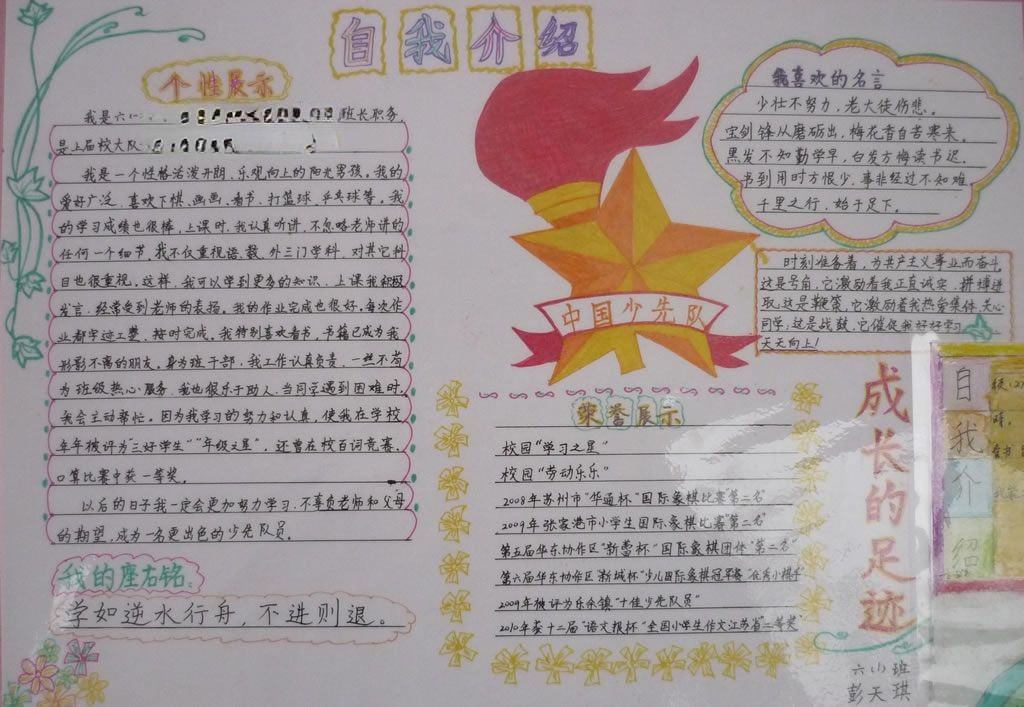 自我介绍
个性展示
我是六 班长职务,
是上届校大队
我是一个性格活泼开朗、乐观向上的阳光男孩。我的
爱好广泛,喜欢下棋、画画、看书、打篮球、乒乓球等。我
的学习成绩也很棒,上课时,我认真听讲,不忽略老师讲的
任何一个细节,我不仅重视语、数、外三门学科,对其它科
目也很重视。这样,我可以学到更多的知识。上课我积极
发言,经常受到老师的表扬。我的作业完成也很好。每次作
业都字迹工整,按时完成。我特别喜欢看书,书籍已成为我
形影不离的朋友。身为班干部,我工作认真负责,一丝不苟
为班级热心服务。我也很乐于助人,当同学遇到困难时,
我会主动帮忙。因为我学习的努力和认真,使我在学校
年年被评为“三好学生”“年级之星”,还曾在校百词竞赛,
口算比赛中获一等奖。
以后的日子我一定会更加努力学习,不辜负老师和父母
的期望,成为一名更出色的少先队员。
我的座右铭
学如逆水行舟,不进则退。
中国少先队
我喜欢的名言
少壮不努力,老大徒伤悲。
宝剑锋从磨砺出,梅花香自苦寒来。
黑发不知勤学早,白发方悔读书迟。
书到用时方恨少,事非经过不知难
千里之行,始于足下。
时刻准备着,为共产主义事业而奋斗,
这是号角,它激励着我正直诚实,拼搏进
取,这是鞭策,它激励着我热爱集体,关心
同学,这是战鼓,它催促我好好学习
天天向上!
荣誉展示
校园“学习之星”
校园“劳动乐乐”
2008年苏州市“华通杯”国际象棋比赛“第二名”
2009年张家港市小学生国际象棋比赛“第二名”
第五届华东协作区“新蕾杯”国际象棋团体“第二名”
第六届华东协作区“新城杯”少儿国际象棋冠军赛“优秀小棋手”
2009年被评为乐余镇“十佳少先队员”
2010年获十二届“语文报杯”全国小学生作文江苏省“二等奖”
成长的足迹
六(1)班
彭天琪
自我介绍